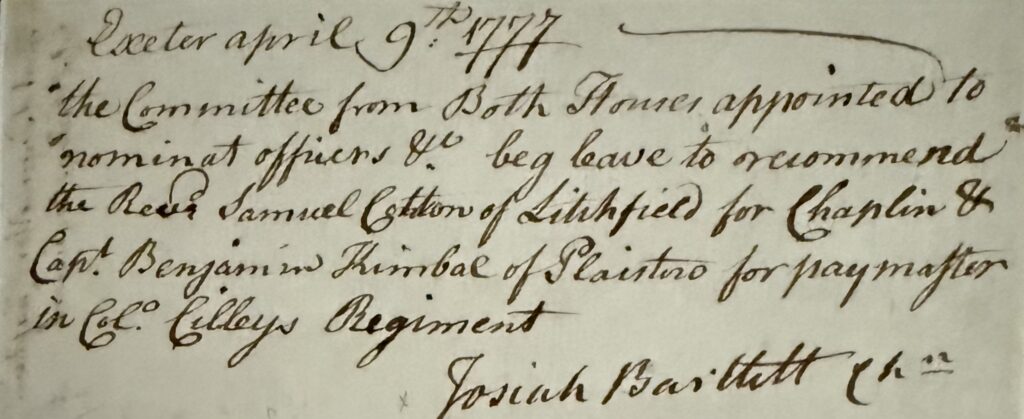 Exeter april 9th. 1777
the Committee from Both Houses appointed to
nominat officers &c. beg leave to recommend
the Revd. Samuel Cotton of Litchfield for Chaplin &
Capt. Benjamin Kimbal of Plaistow for paymaster
in Colo. Cilleys Regiment
Josiah Bartlett Chn